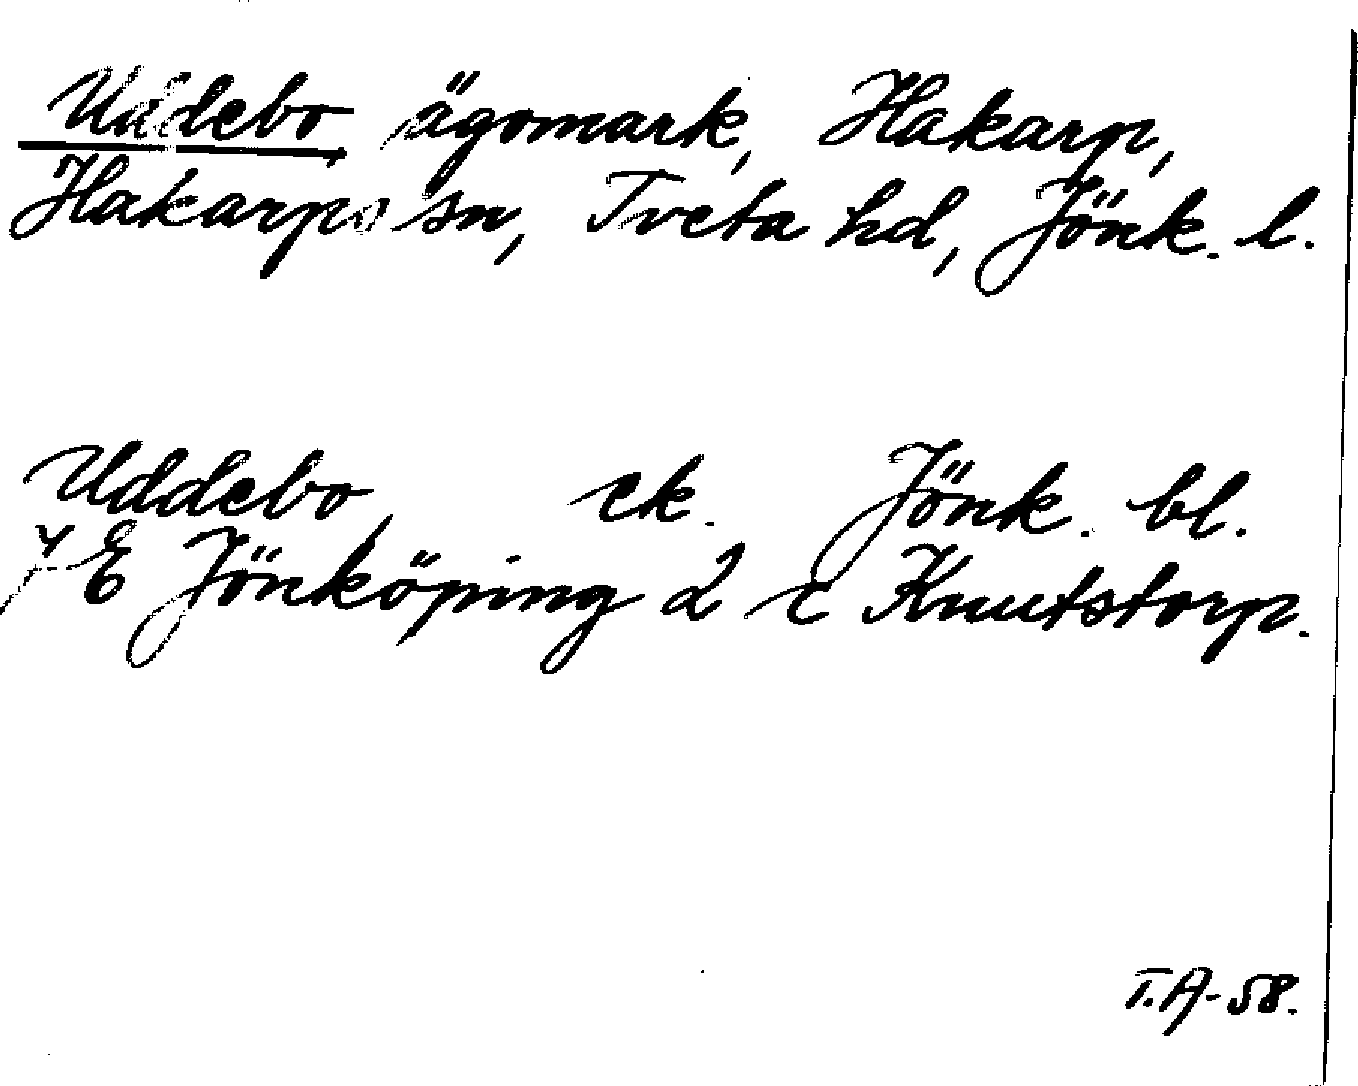 Uddebo, ägomark, Hakarp,
Hakarps sn, Tveta hd, Jönk. l.
Uddebo, ek. Jönk. bl.
7 E Jönköping 2 c Knutstorp.
T.A-58.